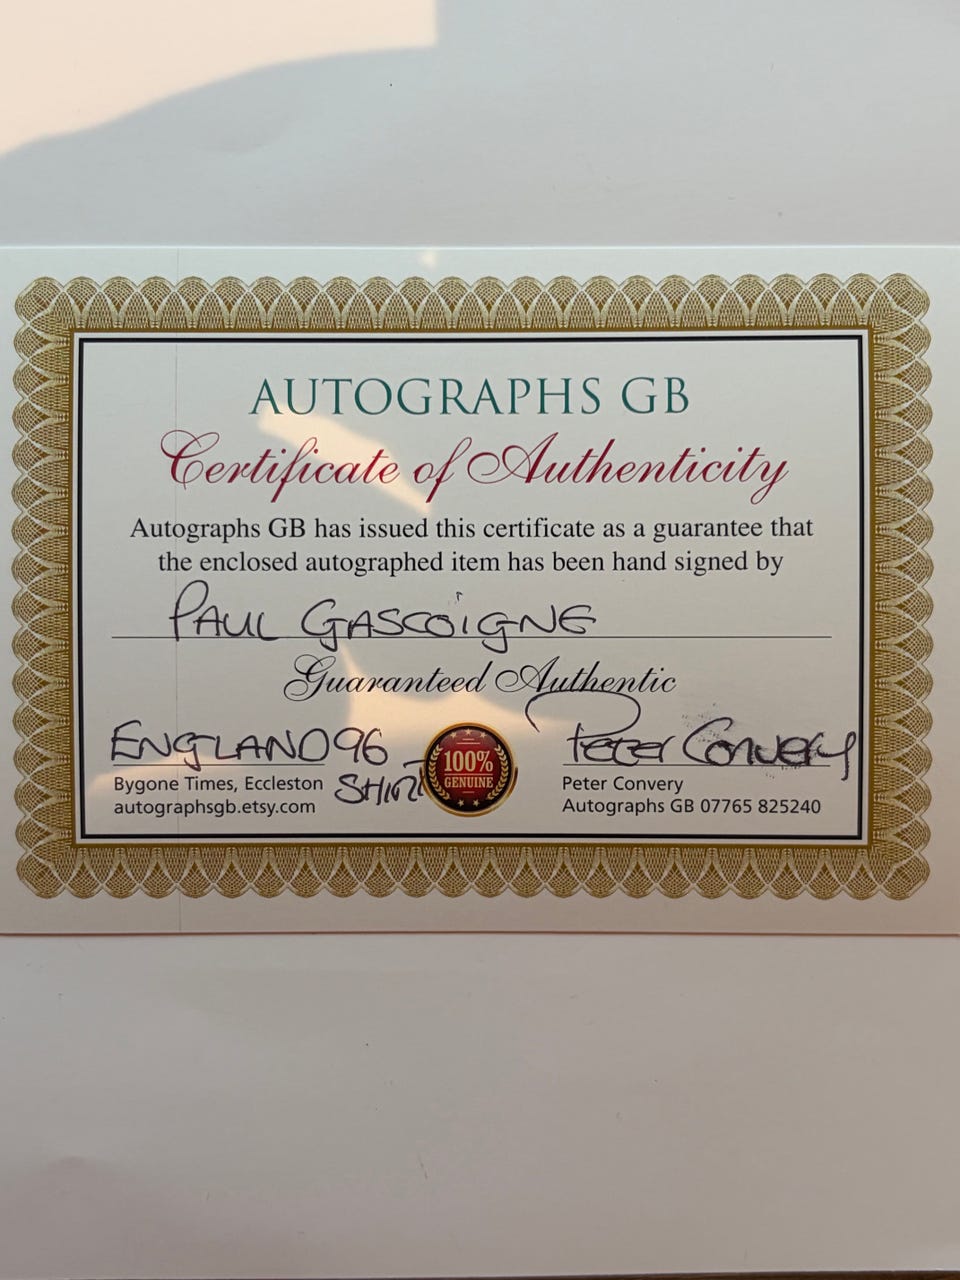 AUTOGRAPHS GB
Certificate of Authenticity
Autographs GB has issued this certificate as a guarantee that
the enclosed autographed item has been hand signed by
PAUL GASCOIGNE
Guaranteed Authentic
ENGLAND 96
SHIRT
Bygone Times, Eccleston
autographsgb.etsy.com
100%
GENUINE
Peter Convery
Peter Convery
Autographs GB 07765 825240